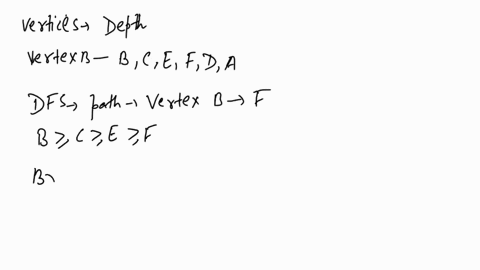 verticls → Depth
vertex B — B, C, E, F, D, A
DFS → path → Vertex B → F
B ⩾ C ⩾ E ⩾ F
B>